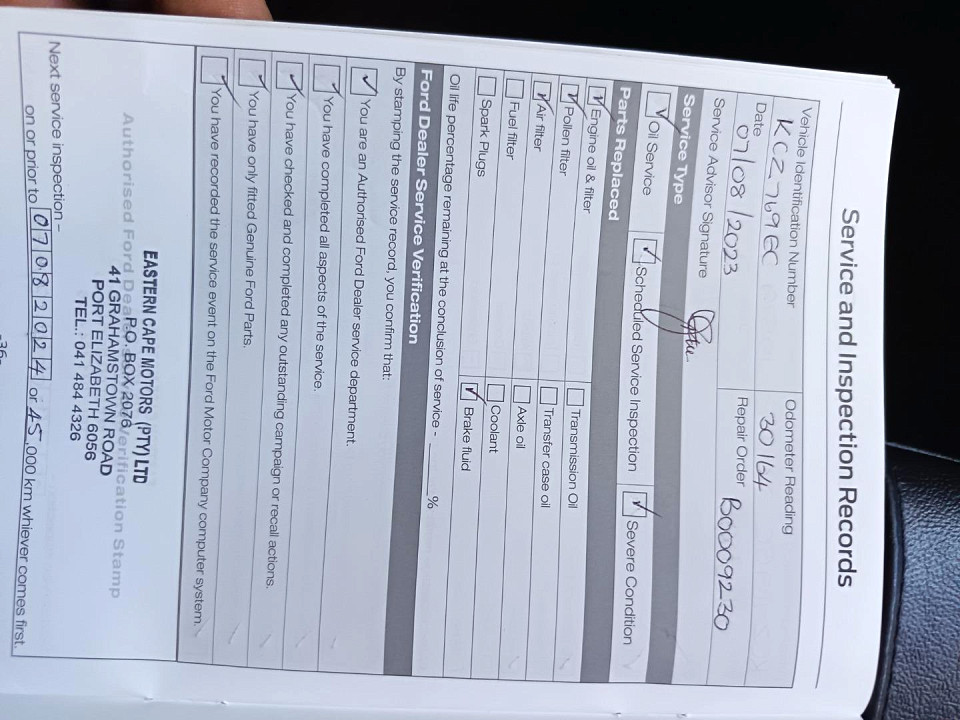 Service and Inspection Records
Vehicle Identification Number
KCZ 769 EC
Odometer Reading
30164
Date
07/08/2023
Repair Order B0009230
Service Advisor Signature
Service Type
Oil Service
Scheduled Service Inspection
Severe Condition
Parts Replaced
Engine oil & filter
Pollen filter
Transmission Oil
Air filter
Transfer case oil
Fuel filter
Axle oil
Spark Plugs
Coolant
Brake fluid
Oil life percentage remaining at the conclusion of service - ______%
Ford Dealer Service Verification
By stamping the service record, you confirm that:
You are an Authorised Ford Dealer service department.
You have completed all aspects of the service.
You have checked and completed any outstanding campaign or recall actions.
You have only fitted Genuine Ford Parts.
You have recorded the service event on the Ford Motor Company computer system.
EASTERN CAPE MOTORS (PTY) LTD
Authorised Ford Dealer Verification Stamp
P.O. BOX 2076
41 GRAHAMSTOWN ROAD
PORT ELIZABETH 6056
TEL.: 041 484 4326
Next service inspection -
on or prior to 07 08 2024 or 45,000 km whiever comes first.
-36-